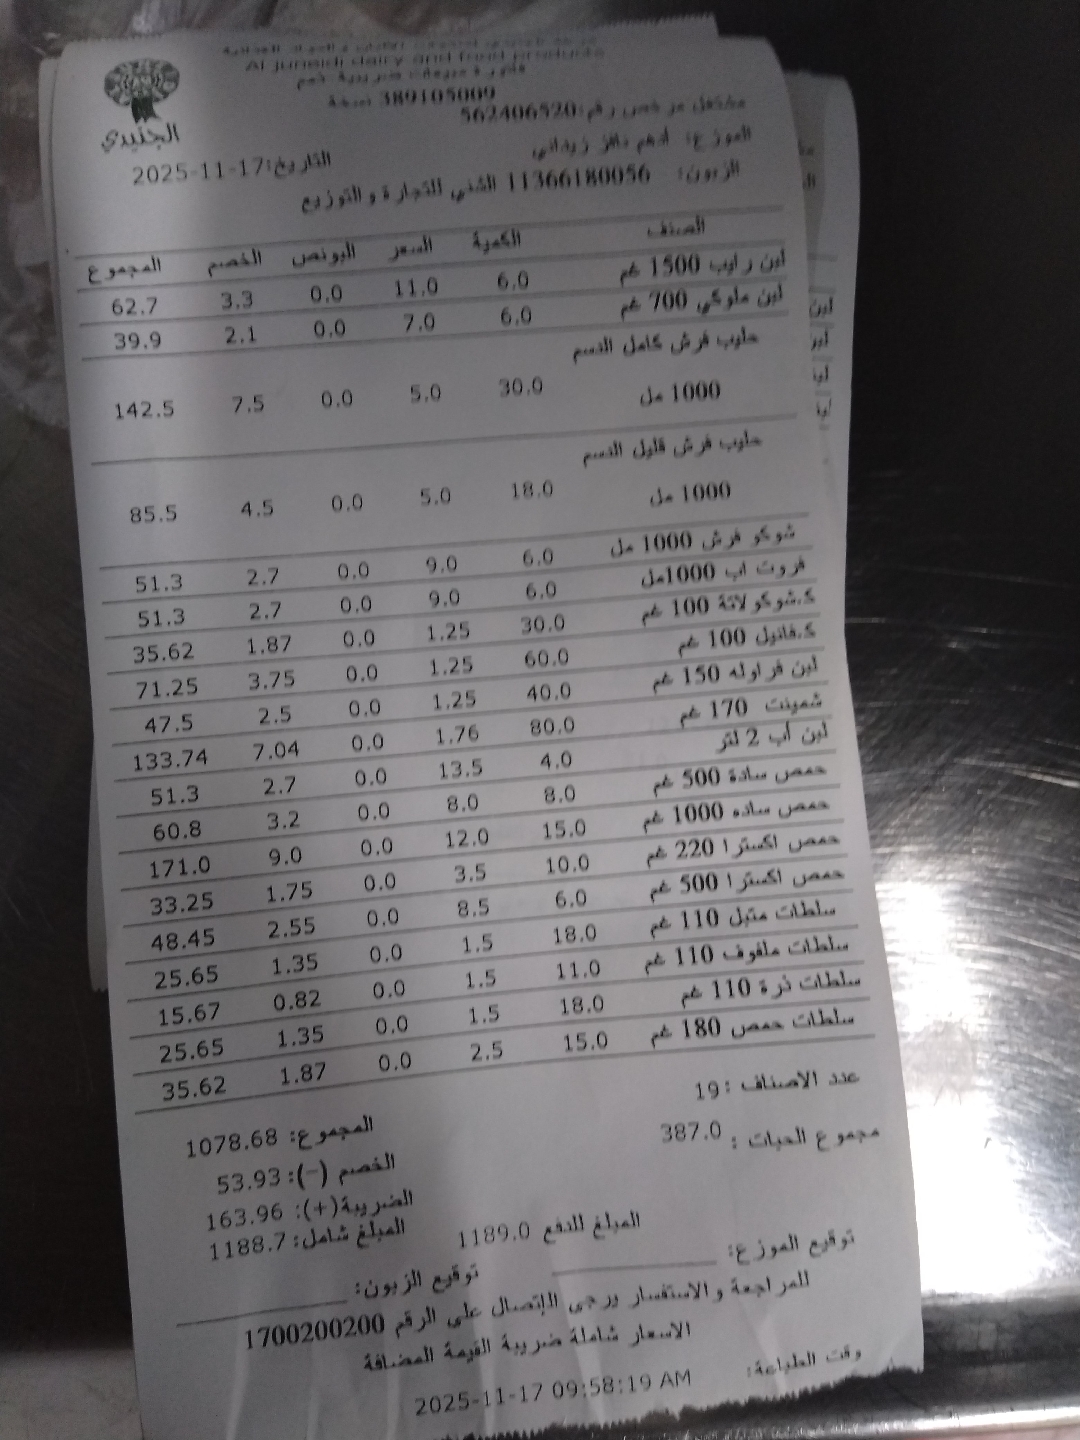 Al juneidi dairy and food products
فاتورة مبيعات ضريبية ذمم
389105009 نسخة
مشتغل مرخص رقم: 562406520
الجنيدي
الموزع: ادهم زيداني
التاريخ: 2025-11-17
الزبون: 11366180056 الشني للتجارة والتوزيع
الصنف الكمية السعر البونص الخصم المجموع
لبن رايب 1500 غم 6.0 11.0 0.0 3.3 62.7
لبن ملوكي 700 غم 6.0 7.0 0.0 2.1 39.9
حليب فرش كامل الدسم
1000 مل 30.0 5.0 0.0 7.5 142.5
حليب فرش قليل الدسم
1000 مل 18.0 5.0 0.0 4.5 85.5
شوكو فرش 1000 مل 6.0 9.0 0.0 2.7 51.3
فروت اب 1000مل 6.0 9.0 0.0 2.7 51.3
ك.شوكولاتة 100 غم 30.0 1.25 0.0 1.87 35.62
ك.فانيل 100 غم 60.0 1.25 0.0 3.75 71.25
لبن فراوله 150 غم 40.0 1.25 0.0 2.5 47.5
شمينت 170 غم 80.0 1.76 0.0 7.04 133.74
لبن أب 2 لتر 4.0 13.5 0.0 2.7 51.3
حمص سادة 500 غم 8.0 8.0 0.0 3.2 60.8
حمص ساده 1000 غم 15.0 12.0 0.0 9.0 171.0
حمص اكسترا 220 غم 10.0 3.5 0.0 1.75 33.25
حمص اكسترا 500 غم 6.0 8.5 0.0 2.55 48.45
سلطات متبل 110 غم 18.0 1.5 0.0 1.35 25.65
سلطات ملفوف 110 غم 11.0 1.5 0.0 0.82 15.67
سلطات ذرة 110 غم 18.0 1.5 0.0 1.35 25.65
سلطات حمص 180 غم 15.0 2.5 0.0 1.87 35.62
عدد الاصناف : 19
المجموع: 1078.68
مجموع الحبات : 387.0
الخصم (-): 53.93
الضريبة(+): 163.96
المبلغ شامل: 1188.7
المبلغ للدفع 1189.0
توقيع الموزع:
توقيع الزبون:
للمراجعة والاستفسار يرجى الإتصال على الرقم 1700200200
الاسعار شاملة ضريبة القيمة المضافة
وقت الطباعة: 2025-11-17 09:58:19 AM